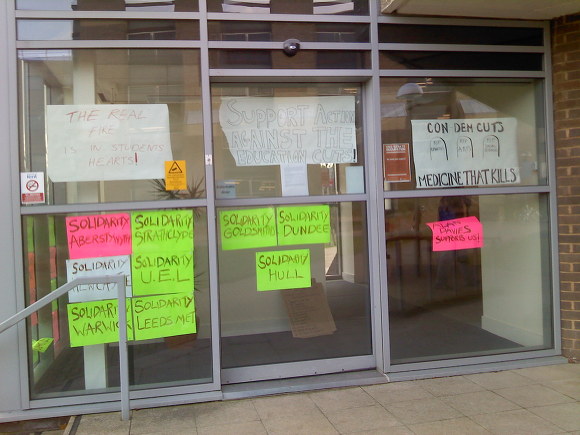 THE REAL
FIRE
IS IN STUDENTS
HEARTS!
SUPPORT ACTION
AGAINST THE
EDUCATION CUTS
CON DEM CUTS
MEDICINE THAT KILLS
SOLIDARITY
ABERSTWYTH
SOLIDARITY
STRATHCLYDE
SOLIDARITY
GOLDSMITHS
SOLIDARITY
DUNDEE
DAVIES
SUPPORTS US!
SOLIDARITY
SOLIDARITY
U.E.L
SOLIDARITY
HULL
SOLIDARITY
WARWICK
SOLIDARITY
LEEDS MET